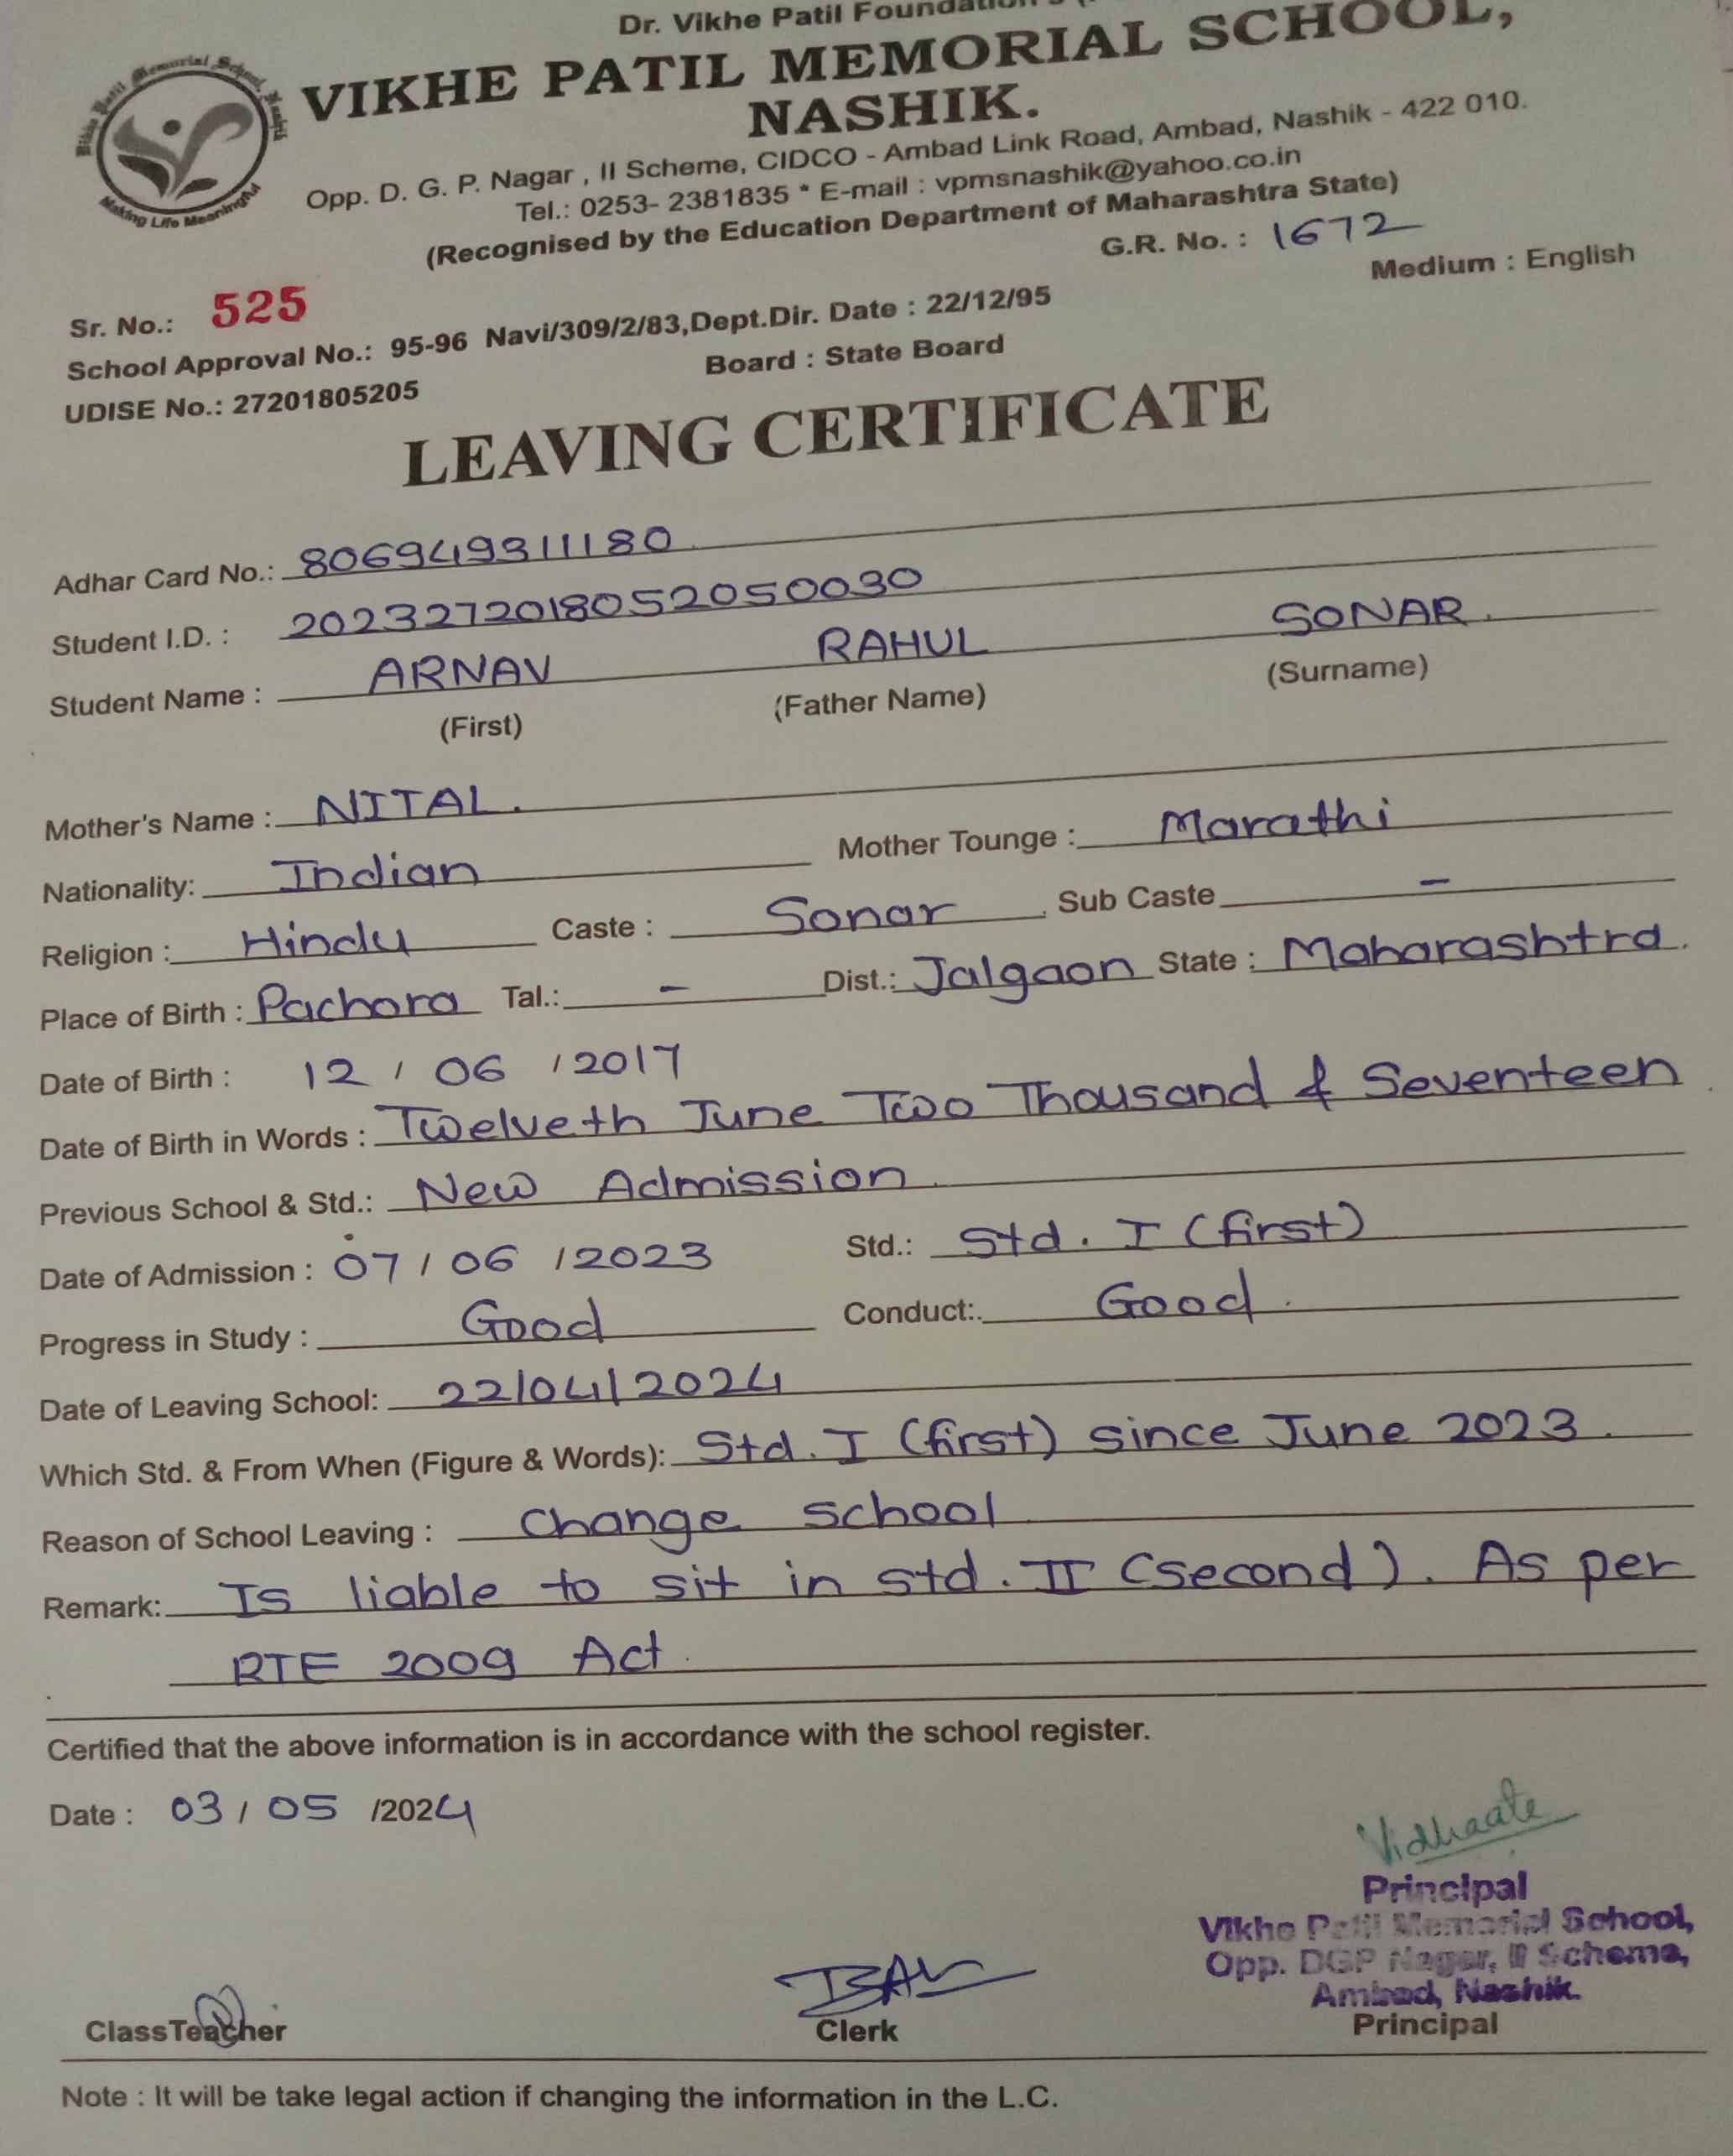 Dr. Vikhe Patil Foundation's
VIKHE PATIL MEMORIAL SCHOOL,
NASHIK.
Vikhe Patil Memorial School, Nashik
Making Life Meaningful
Opp. D. G. P. Nagar , II Scheme, CIDCO - Ambad Link Road, Ambad, Nashik - 422 010.
Tel.: 0253- 2381835 * E-mail : vpmsnashik@yahoo.co.in
(Recognised by the Education Department of Maharashtra State)
G.R. No. : 1672
Sr. No.: 525
Medium : English
School Approval No.: 95-96 Navi/309/2/83,Dept.Dir. Date : 22/12/95
UDISE No.: 27201805205 Board : State Board
LEAVING CERTIFICATE
Adhar Card No.: 806949311180
Student I.D. : 2023272018052050030
Student Name : ARNAV RAHUL SONAR.
(First) (Father Name) (Surname)
Mother's Name : NITAL.
Nationality: Indian Mother Tounge : Marathi
Religion : Hindu Caste : Sonar Sub Caste -
Place of Birth : Pachora Tal.: - Dist.: Jalgaon State : Maharashtra.
Date of Birth : 12 / 06 / 2017
Date of Birth in Words : Twelveth June Two Thousand & Seventeen
Previous School & Std.: New Admission.
Date of Admission : 07 / 06 / 2023 Std.: Std. I (first)
Progress in Study : Good Conduct: Good.
Date of Leaving School: 22/04/2024
Which Std. & From When (Figure & Words): Std. I (first) since June 2023.
Reason of School Leaving : Change school
Remark: Is liable to sit in std. II (second). As per
RTE 2009 Act.
Certified that the above information is in accordance with the school register.
Date : 03 / 05 /2024
Principal
Vikhe Patil Memorial School,
Opp. DGP Nagar, II Scheme,
Ambad, Nashik.
ClassTeacher Clerk Principal
Note : It will be take legal action if changing the information in the L.C.